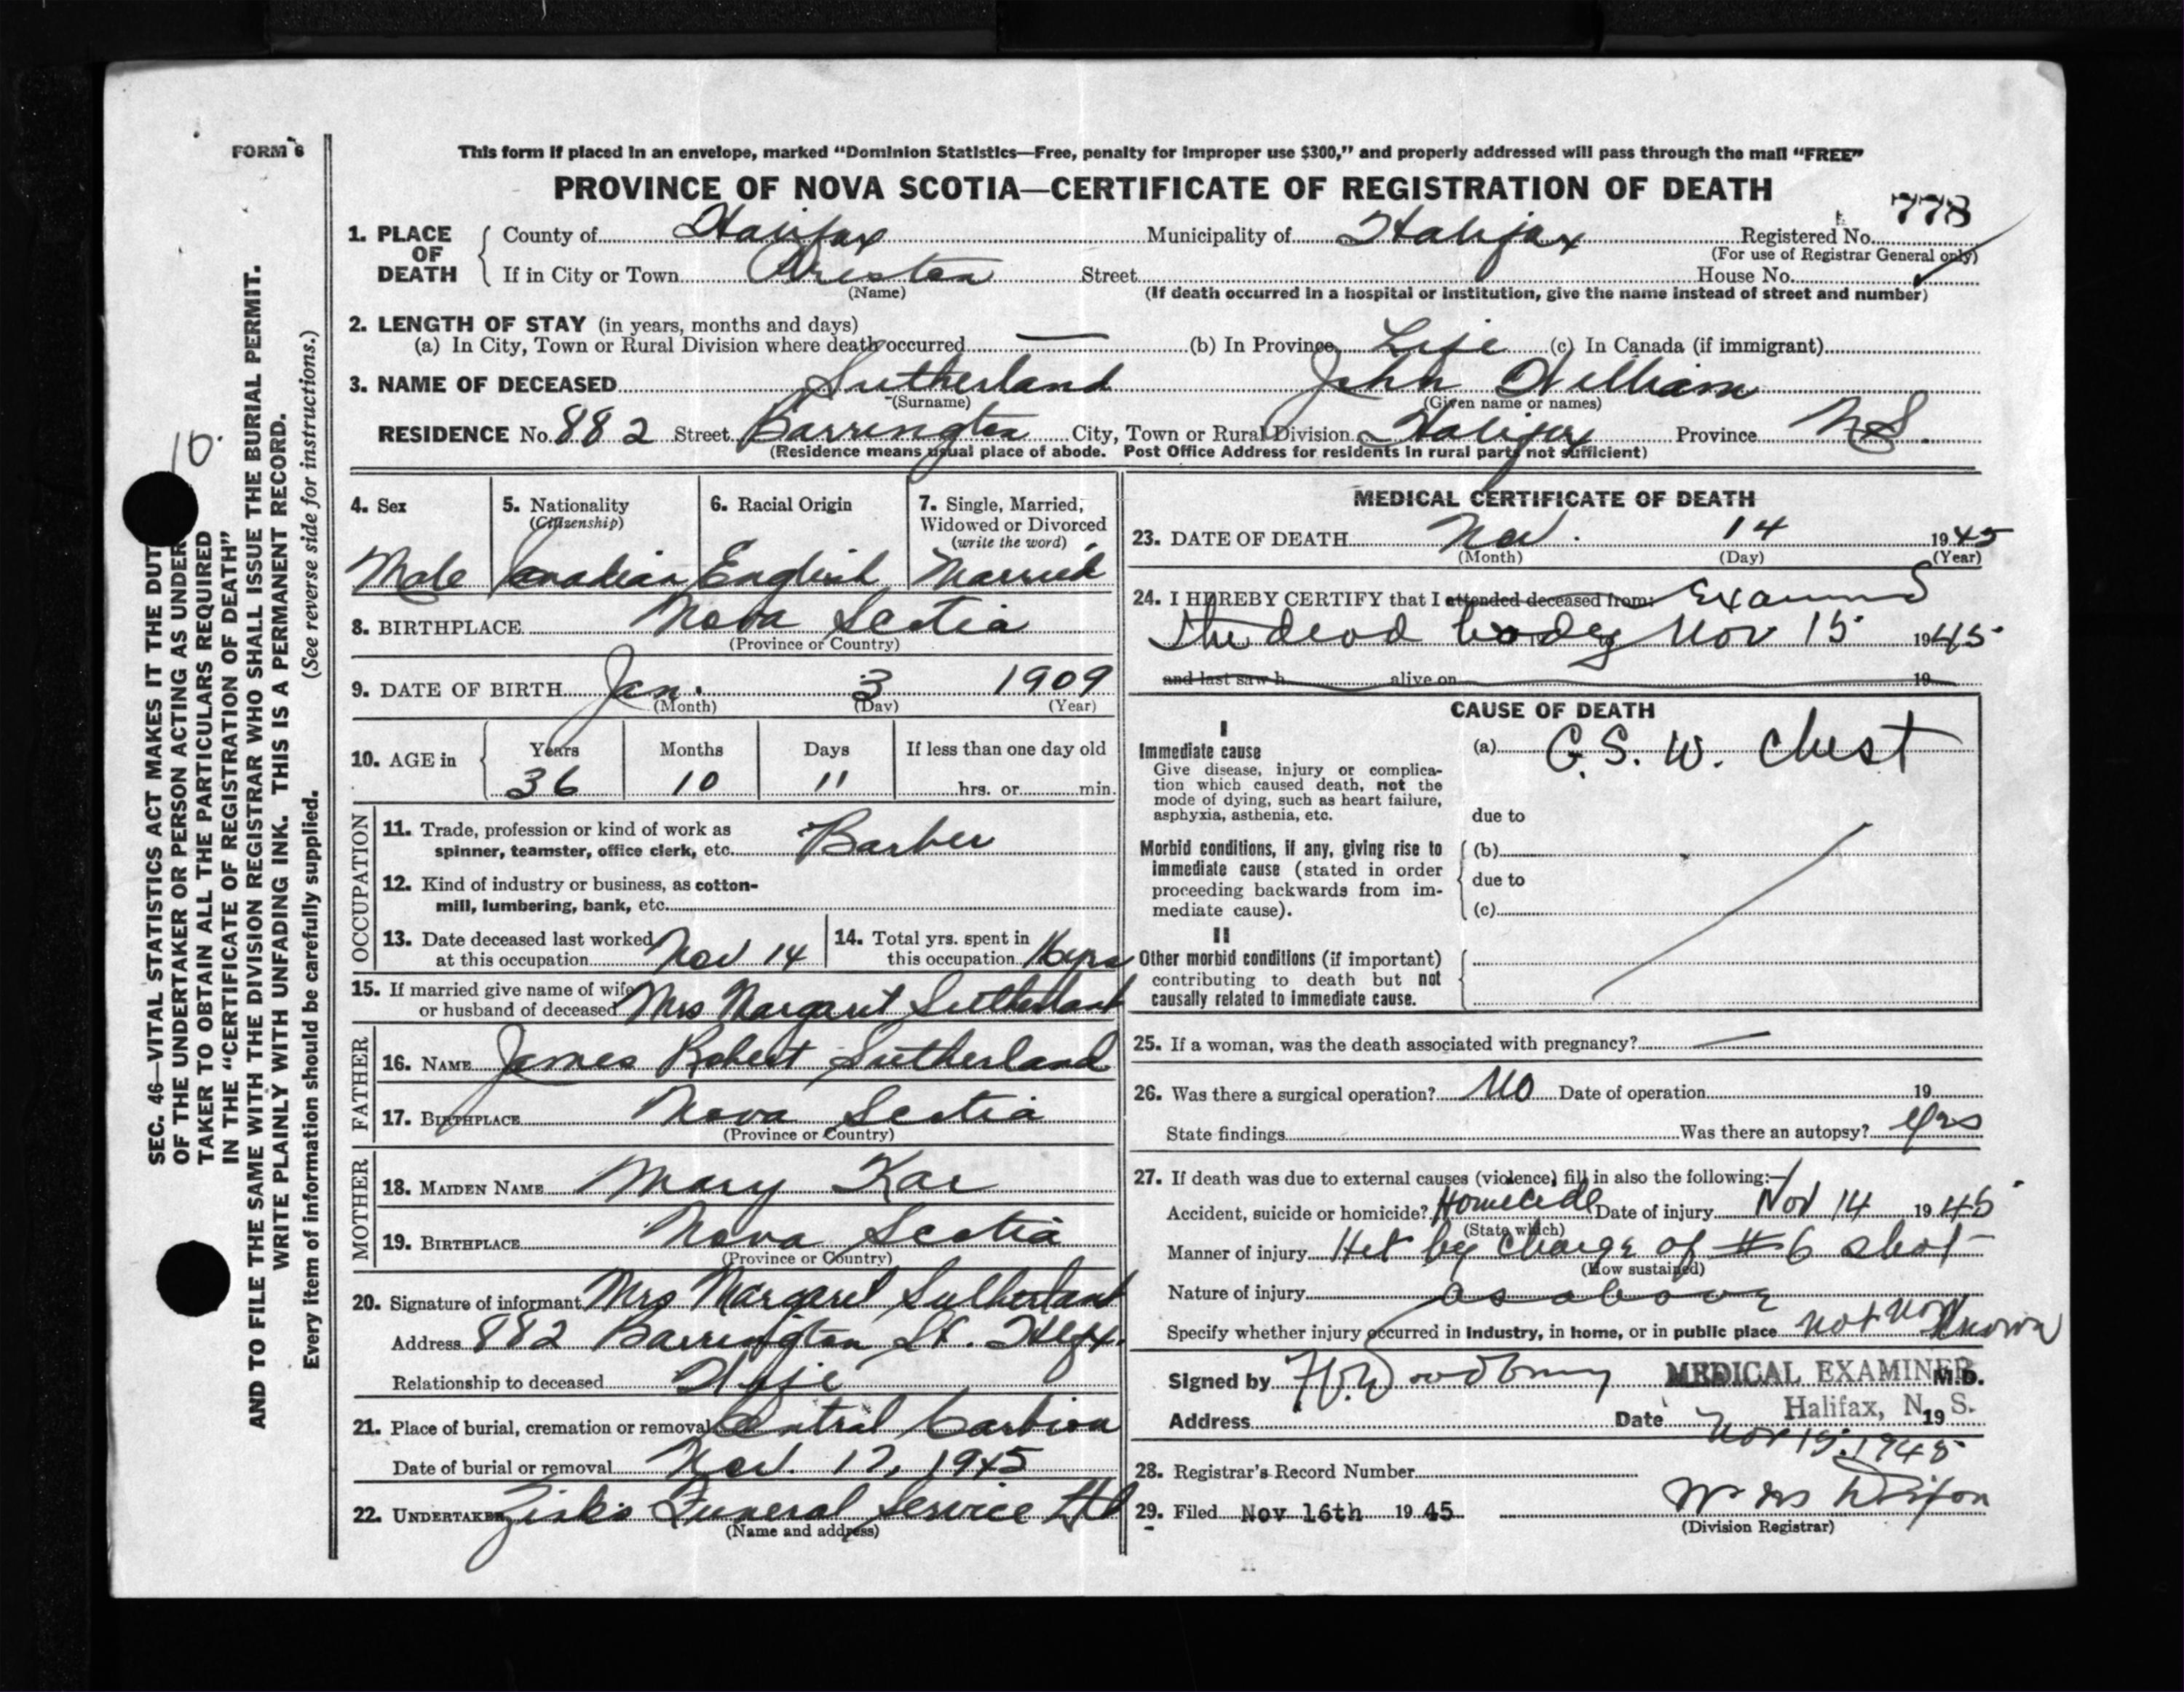 FORM 6
This form if placed in an envelope, marked "Dominion Statistics—Free, penalty for improper use $300," and properly addressed will pass through the mail "FREE"
PROVINCE OF NOVA SCOTIA—CERTIFICATE OF REGISTRATION OF DEATH
778
1. PLACE OF DEATH County of Halifax Municipality of Halifax Registered No.
(For use of Registrar General only)
If in City or Town Preston Street House No.
(Name) (If death occurred in a hospital or institution, give the name instead of street and number)
2. LENGTH OF STAY (in years, months and days)
(a) In City, Town or Rural Division where death occurred — (b) In Province Life (c) In Canada (if immigrant)
3. NAME OF DECEASED Sutherland John William
(Surname) (Given name or names)
RESIDENCE No. 882 Street Barrington City, Town or Rural Division Halifax Province N.S.
(Residence means usual place of abode. Post Office Address for residents in rural parts not sufficient)
4. Sex 5. Nationality (Citizenship) 6. Racial Origin 7. Single, Married, Widowed or Divorced (write the word)
Male Canadian English Married
8. BIRTHPLACE Nova Scotia
(Province or Country)
9. DATE OF BIRTH Jan. 3 1909
(Month) (Day) (Year)
10. AGE in Years Months Days If less than one day old
36 10 11 hrs. or min.
OCCUPATION
11. Trade, profession or kind of work as
spinner, teamster, office clerk, etc. Barber
12. Kind of industry or business, as cotton-
mill, lumbering, bank, etc.
13. Date deceased last worked
at this occupation Nov 14
14. Total yrs. spent in
this occupation 16 yrs
15. If married give name of wife
or husband of deceased Mrs Margaret Sutherland
FATHER
16. NAME James Robert Sutherland
17. BIRTHPLACE Nova Scotia
(Province or Country)
MOTHER
18. MAIDEN NAME Mary
19. BIRTHPLACE Nova Scotia
(Province or Country)
20. Signature of informant Mrs Margaret Sutherland
Address 882 Barrington St. Hlfx.
Relationship to deceased Wife
21. Place of burial, cremation or removal Central
Date of burial or removal Nov. 17, 1945
22. UNDERTAKER Zink's Funeral Service Ltd
(Name and address)
MEDICAL CERTIFICATE OF DEATH
23. DATE OF DEATH Nov. 14 1945
(Month) (Day) (Year)
24. I HEREBY CERTIFY that I attended deceased from: Examined
the dead body Nov 15 1945
and last saw h alive on 19
CAUSE OF DEATH
I
Immediate cause
Give disease, injury or complica-
tion which caused death, not the
mode of dying, such as heart failure,
asphyxia, asthenia, etc.
(a) G.S.W. chest
due to
Morbid conditions, if any, giving rise to
immediate cause (stated in order
proceeding backwards from im-
mediate cause).
(b)
due to
(c)
II
Other morbid conditions (if important)
contributing to death but not
causally related to immediate cause.
25. If a woman, was the death associated with pregnancy? —
26. Was there a surgical operation? No Date of operation 19
State findings Was there an autopsy? Yes
27. If death was due to external causes (violence) fill in also the following:—
Accident, suicide or homicide? Homicide Date of injury Nov 14 1945
(State which)
Manner of injury Hit by charge of #6 shot
(How sustained)
Nature of injury as above
Specify whether injury occurred in industry, in home, or in public place not now known
Signed by MEDICAL EXAMINER M.D.
Address Date Halifax, N. S. 19
Nov 15. 1945
28. Registrar's Record Number
29. Filed Nov 16th 1945 Dixon
(Division Registrar)
10.
SEC. 46—VITAL STATISTICS ACT MAKES IT THE DUT
OF THE UNDERTAKER OR PERSON ACTING AS UNDER
TAKER TO OBTAIN ALL THE PARTICULARS REQUIRED
IN THE "CERTIFICATE OF REGISTRATION OF DEATH"
AND TO FILE THE SAME WITH THE DIVISION REGISTRAR WHO SHALL ISSUE THE BURIAL PERMIT.
WRITE PLAINLY WITH UNFADING INK. THIS IS A PERMANENT RECORD.
Every item of information should be carefully supplied. (See reverse side for instructions.)